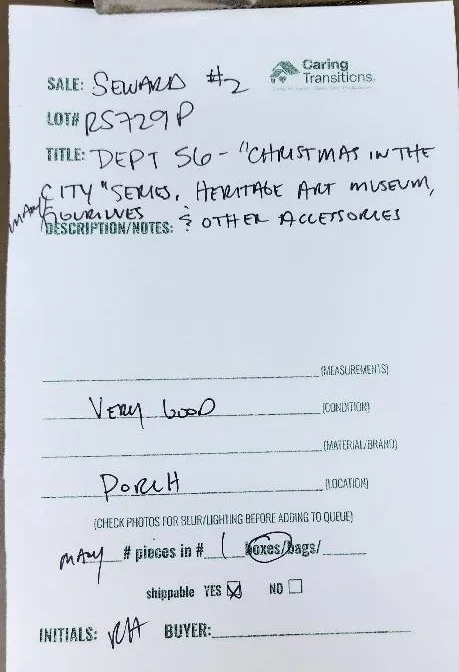 Caring
Transitions
SALE: SEWARD #2
LOT# RS729P
TITLE: DEPT 56 - "CHRISTMAS IN THE
CITY" SERIES, HERITAGE ART MUSEUM,
MANY FIGURINES & OTHER ACCESSORIES
DESCRIPTION/NOTES:
(MEASUREMENTS)
VERY GOOD (CONDITION)
(MATERIAL/BRAND)
PORCH (LOCATION)
(CHECK PHOTOS FOR BLUR/LIGHTING BEFORE ADDING TO QUEUE)
MANY # pieces in # 1 boxes/bags/
shippable YES NO
INITIALS: RH BUYER: